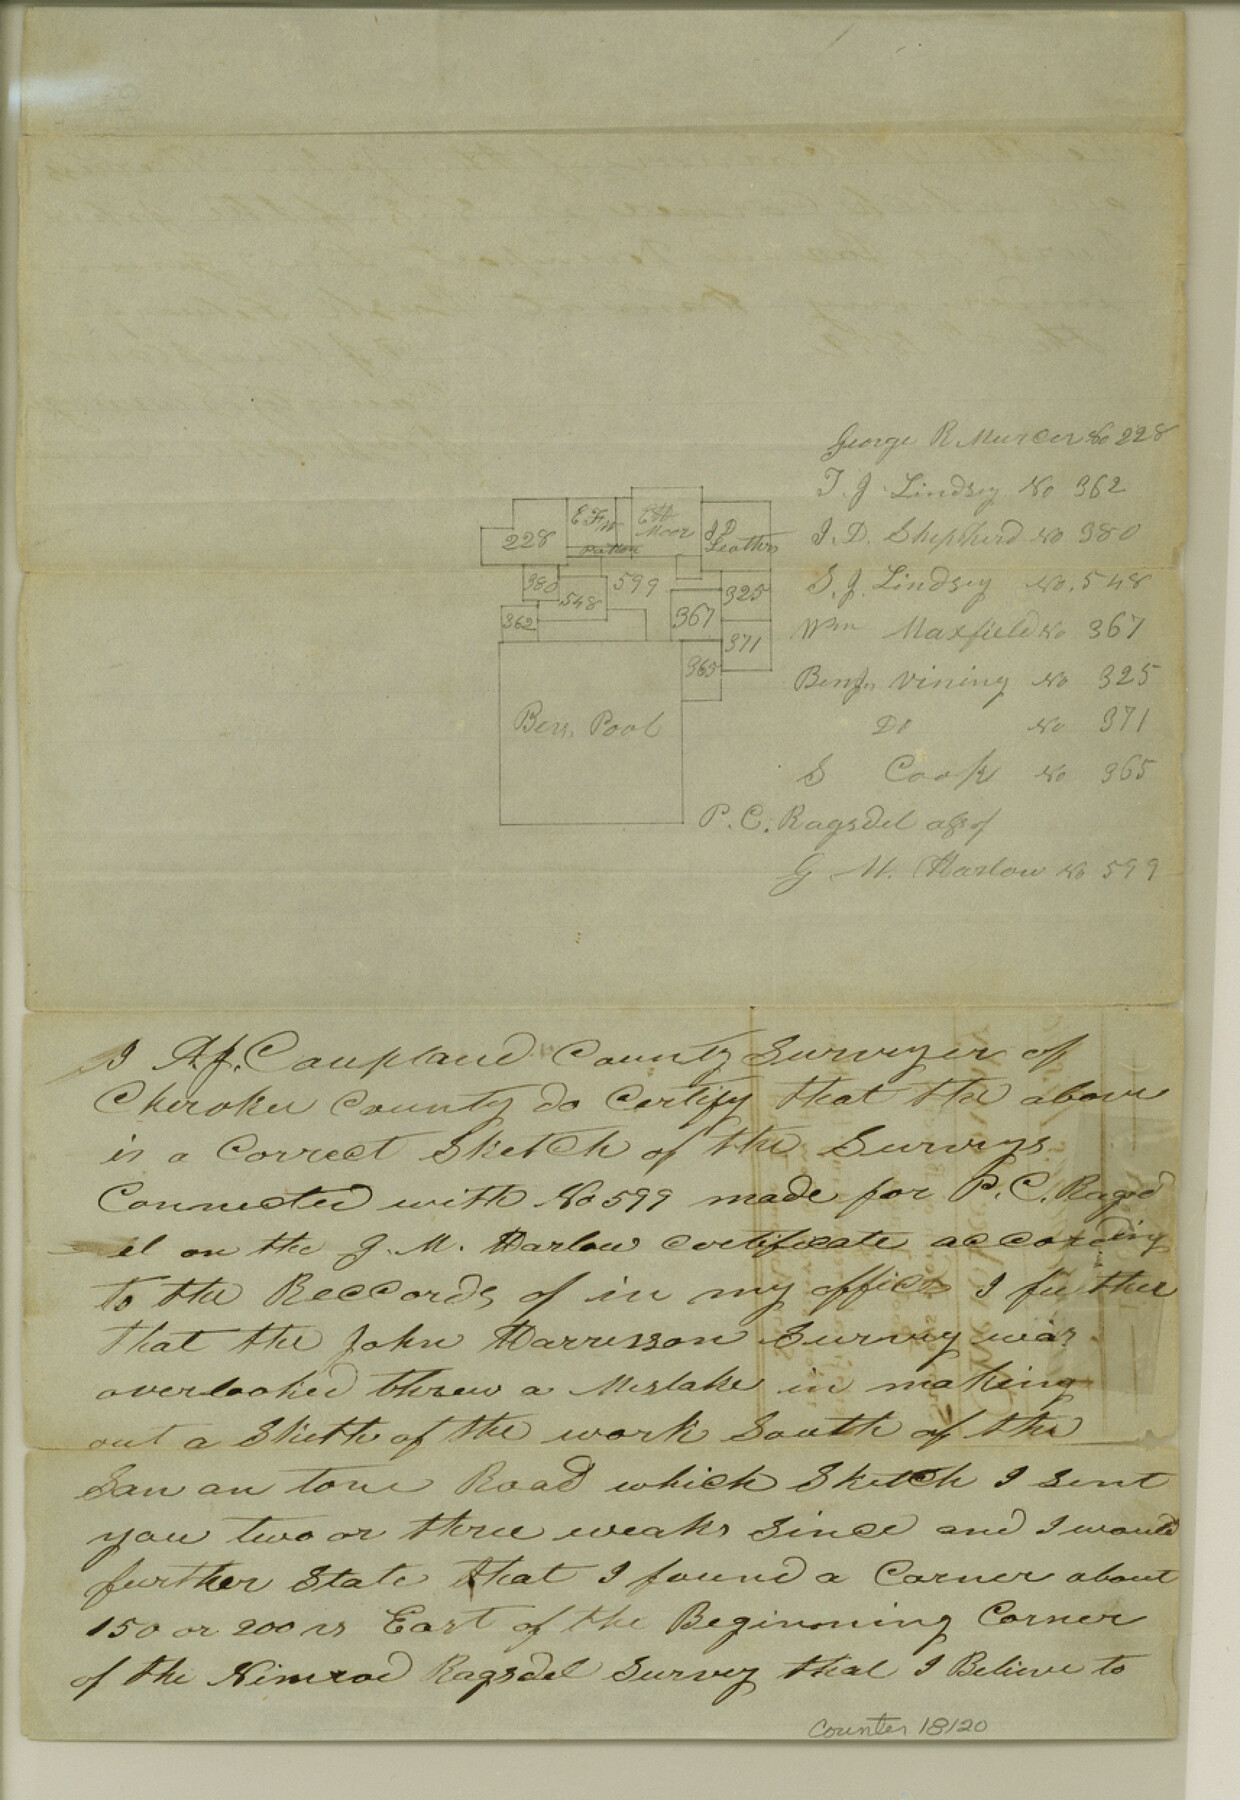 George R Murcer No 228
T. J Lindsey No 362
J. D. Shepherd No 380
S. J. Lindsey No. 548
Wm Maxfield No 367
Benj. Vining No 325
Do No 371
S Cook No 365
P. C. Ragsdel as of
G M. Harlow No 599
228
E F M
Patton
E W
Moor
J D
Leathers
380
548
599
325
362
367
371
365
Ben, Pool
I A.J. Coupland County Surveyer of
Cherokee County do Certify that the above
is a Correct Sketch of the Surveys
Connected with No 599 made for P. C. Ragsd
el on the G. M. Harlow certificate according
to the Reccords of in my office I further
that the John Harrisson Survey was
overlooked threw a Mistake in making
out a Sketh of the work South of the
San an tone Road which Sketch I sent
you two or three weaks Since and I would
further State that I found a Corner about
150 or 200 vs East of the Beginning Corner
of the Nimrod Ragsdel Survey that I Believe to
Counter 18120